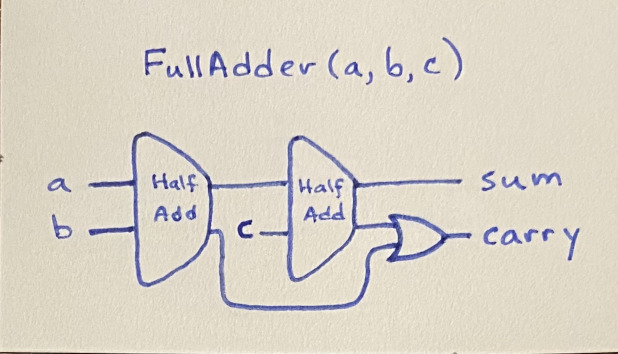 FullAdder (a, b, c)
a
Half
Add
Half
Add
sum
b
c
carry